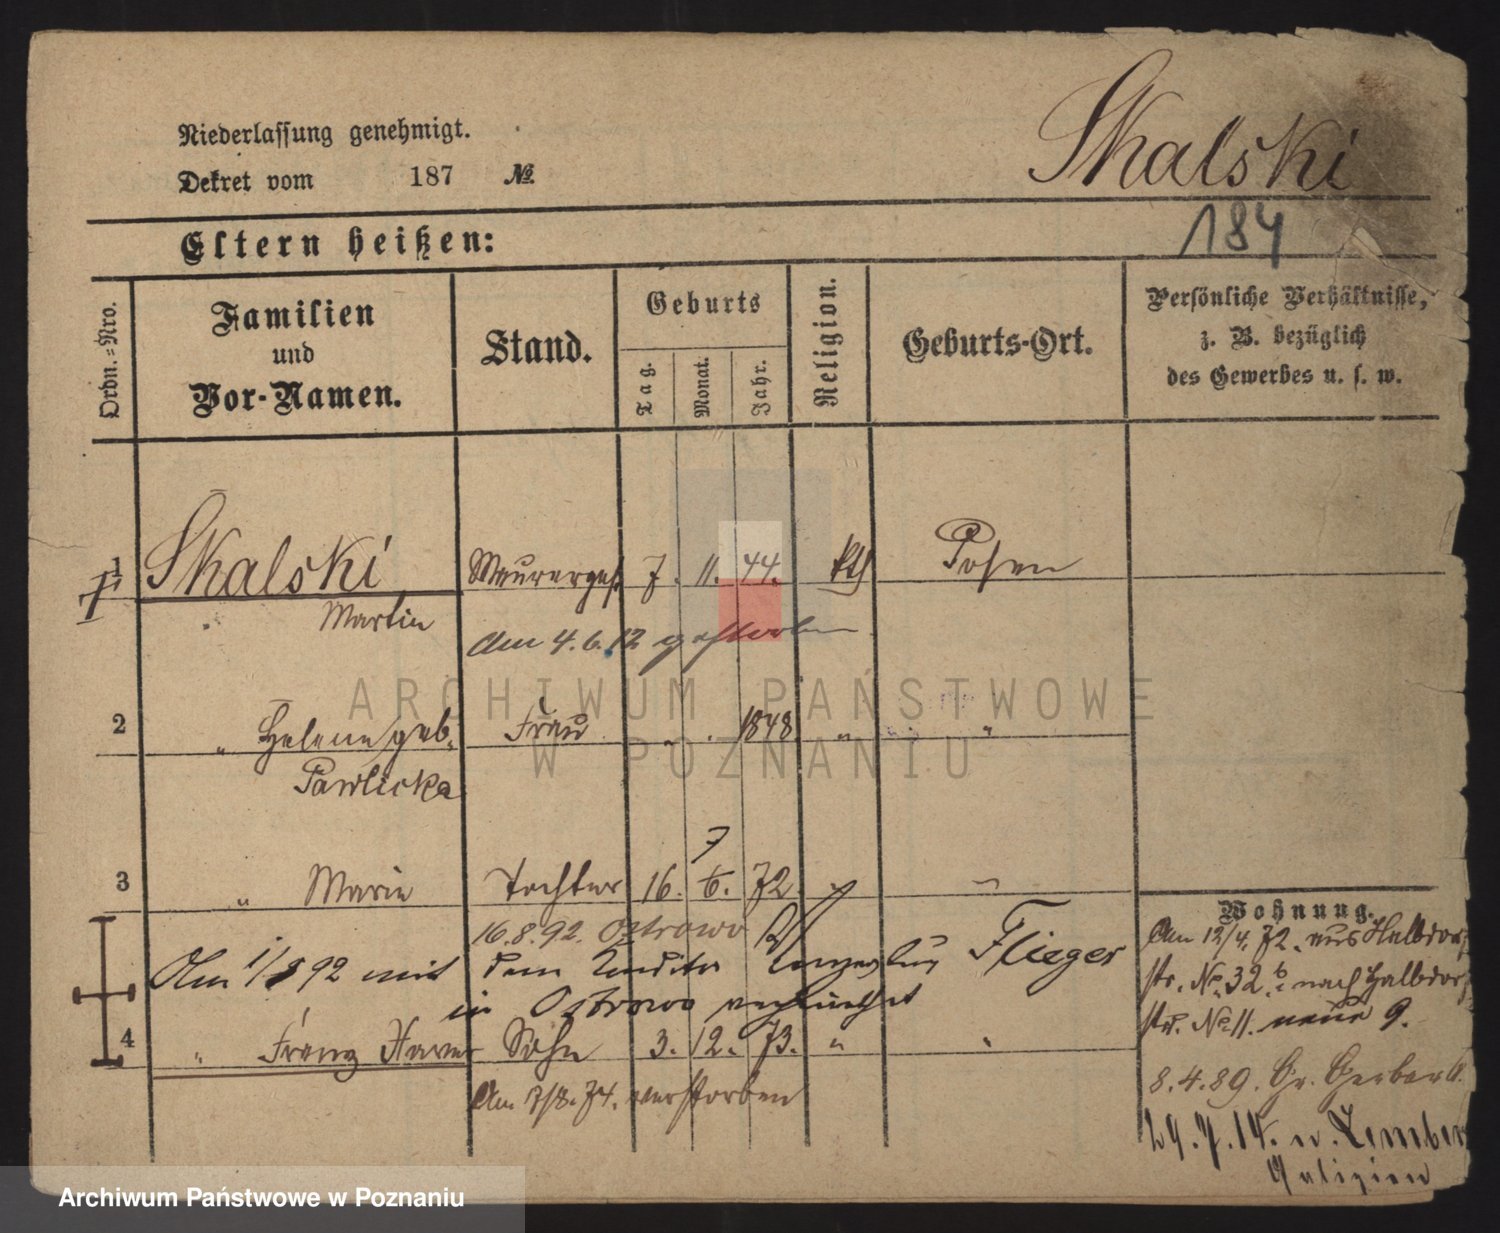 Niederlassung genehmigt.
Dekret vom 187 №
Skalski
184
Eltern heißen:
Ordn.=Nro.
Familien
und
Vor-Namen.
Stand.
Geburts
Tag.
Monat.
Jahr.
Religion.
Geburts-Ort.
Persönliche Verhältnisse,
z. B. bezüglich
des Gewerbes u. s. w.
1 Skalski Maurerges. 7. 11. 44. kth Posen
Martin
Am 4.6.12 gestorben
2 " Helene geb. Frau 1848 " "
Pawlicka
3 " Marie Tochter 16. 6. 72
7
16.8.92. Ostrowo
Am 1/8 92 mit dem Flieger
in Ostrowo
4 " Franz Xaver Sohn 3. 12. 73. " "
Am 7/8. 74. verstorben
Wohnung.
Am 12/4. 72. aus Halbdorf
str. No. 32 b. nach Halbdorf
str. No 11. neue 9.
8.4.89. Gr. Gerber
29.7.14. n. Lemberg
Galizien
ARCHIWUM PAŃSTWOWE
W POZNANIU
Archiwum Państwowe w Poznaniu